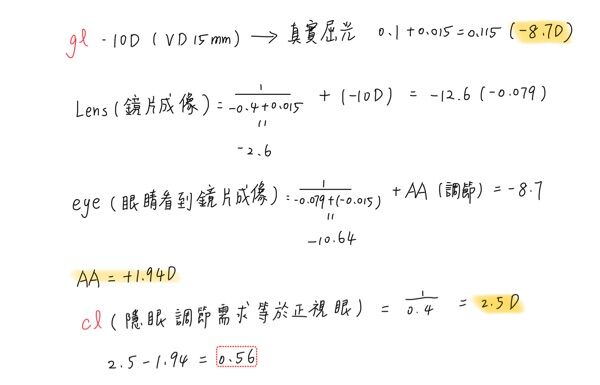 gl -10D (VD 15mm) → 真實屈光 0.1+0.015=0.115 (-8.7D)
Lens (鏡片成像) = 1/(-0.4+0.015) + (-10D) = -12.6 (-0.079)
=
-2.6
eye (眼睛看到鏡片成像) = 1/(-0.079+(-0.015)) + AA (調節) = -8.7
=
-10.64
AA = +1.94D
cl (隱眼調節需求等於正視眼) = 1/0.4 = 2.5D
2.5-1.94 = 0.56